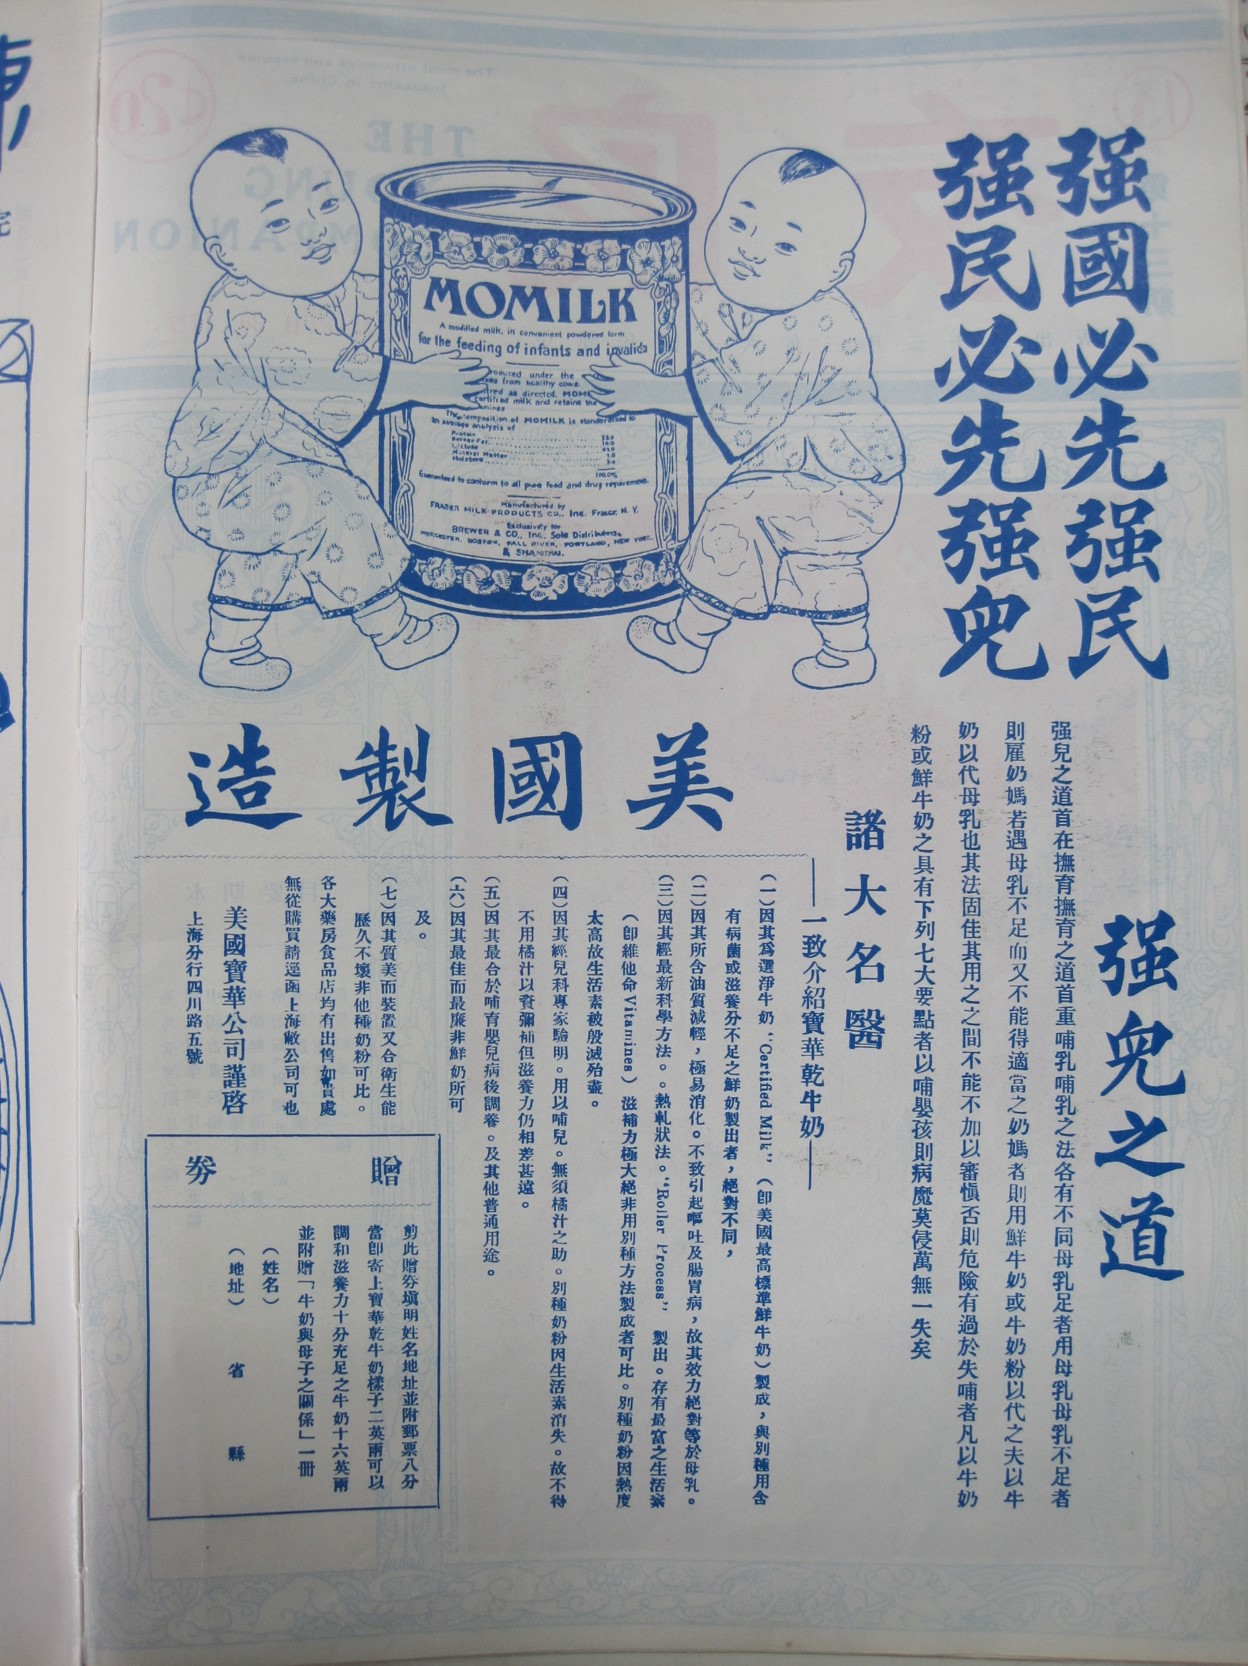 强國必先强民
强民必先强兒
MOMILK
A modified milk, in convenient powdered form
for the feeding of infants and invalids
produced under the
from healthy cows.
as directed, MOM
certified milk and retains the
The composition of MOMILK is standardised to
an average analysis of
Protein
Butter Fat
Lactose
Mineral Matter
Moisture
100.0%
Guaranteed to conform to all pure food and drug requirements.
Manufactured by
FRASER MILK PRODUCTS CO., Inc. Fraser, N. Y.
Exclusively for
BREWER & CO., Inc. Sole Distributors,
WORCESTER, BOSTON, FALL RIVER, PORTLAND, NEW YORK
& SHANGHAI.
美國製造
强兒之道
强兒之道首在撫育撫育之道首重哺乳哺乳之法各有不同母乳足者用母乳母乳不足者
則雇奶媽若遇母乳不足而又不能得適當之奶媽者則用鮮牛奶或牛奶粉以代之夫以牛
奶以代母乳也其法固佳其用之之間不能不加以審慎否則危險有過於失哺者凡以牛奶
粉或鮮牛奶之具有下列七大要點者以哺嬰孩則病魔莫侵萬無一失矣
諸大名醫
——一致介紹寶華乾牛奶——
(一)因其爲選淨牛奶“Certified Milk”(即美國最高標準鮮牛奶)製成,與別種用含
有病菌或滋養分不足之鮮奶製出者,絕對不同,
(二)因其所含油質減輕,極易消化。不致引起嘔吐及腸胃病,故其效力絕對等於母乳。
(三)因其經最新科學方法。。熱軋狀法。“Roller Process” 製出。存有最富之生活素
(即維他命Vitamines)滋補力極大絕非用別種方法製成者可比。別種奶粉因熱度
太高故生活素被殷滅殆盡。
(四)因其經兒科專家驗明。用以哺兒。無須橘汁之助。別種奶粉因生活素消失。故不得
不用橘汁以資彌補但滋養力仍相差甚遠。
(五)因其最合於哺育嬰兒病後調養。及其他普通用途。
(六)因其最佳而最廉非鮮奶所可
及。
(七)因其質美而裝置又合衛生能
歷久不壞非他種奶粉可比。
各大藥房食品店均有出售如貴處
無從購買請逕函上海敝公司可也
美國寶華公司謹啓
上海分行四川路五號
贈券
剪此贈券填明姓名地址並附郵票八分
當即寄上寶華乾牛奶樣子二英兩可以
調和滋養力十分充足之牛奶十六英兩
並附贈「牛奶與母子之關係」一冊
(姓名)
(地址) 省 縣